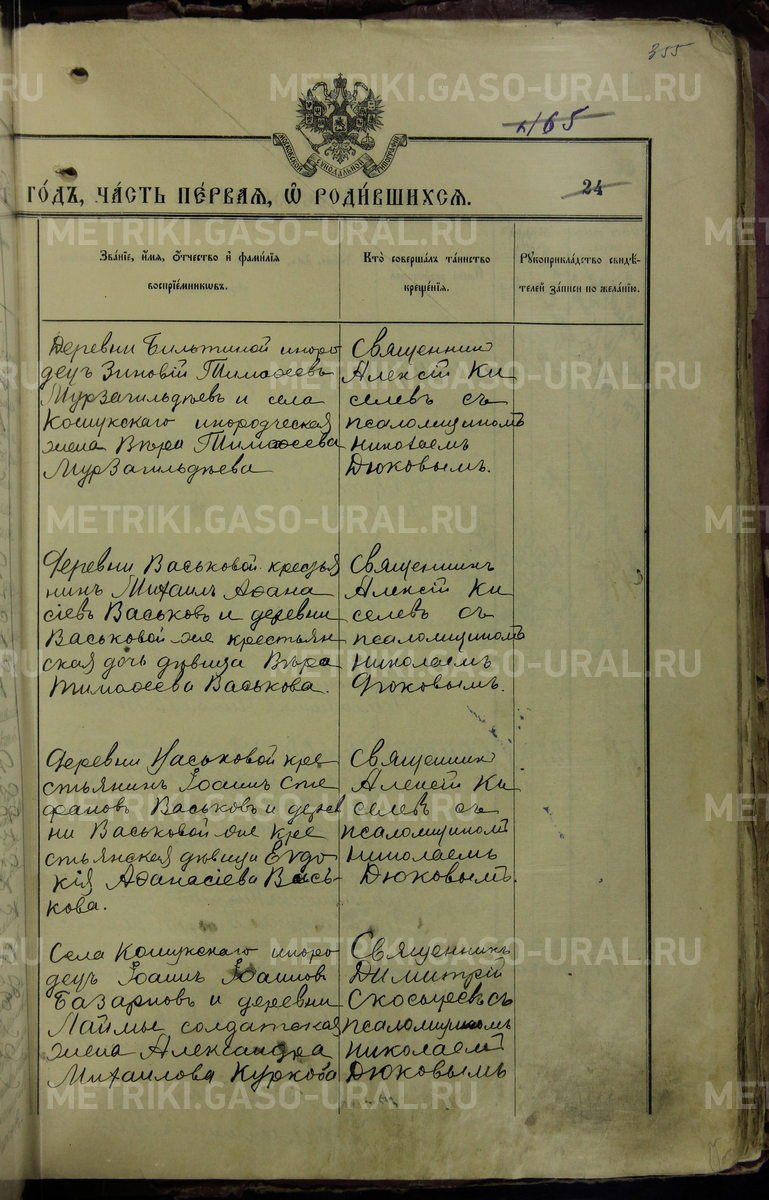 355
465
МОСКОВСКОЙ СѴНОДАЛЬНОЙ ТИПОГРАФІИ
ГО́ДЪ, ЧА́СТЬ ПЕ́РВАѦ, Ѡ҆ РОДИ́ВШИХСѦ.
24
Зва́нїе, и҆́мѧ, ѻ҆́тчество и҆ фами́лїѧ
воспрїе́мникѡвъ.
Кто̀ соверша́лъ та́инство
креще́нїѧ.
Рꙋкоприкла́дство свидѣ́-
телей за́писи по жела́нїю.
Деревни Бильтиной иноро
децъ Зиновій Тимоѳеевъ
Мурзагильдѣевъ и села
Кошукскаго инородческая
жена Вѣра Тимоѳеева
Мурзагильдѣева
Священник
Алексій Ки
селевъ съ
псаломщикомъ
Николаемъ
Дюковымъ.
Деревни Васьковой кресья
нинъ Михаилъ Аѳана
сіевъ Васьковъ и деревни
Васьковой же крестьян
ская дочь дѣвица Вѣра
Тимоѳеева Васькова.
Священникъ
Алексій Ки
селевъ съ
псаломщикомъ
Николаемъ
Дюковымъ.
Деревни Васьковой кре
стьянинъ Іоаннъ Сте
фановъ Васьковъ и дерев
ни Васьковой же кре
стьянская дѣвица Евдо
кія Аѳанасіева Вась-
кова.
Священник
Алексій Ки
селевъ съ
псаломщикомъ
Николаемъ
Дюковымъ.
Села Кошукскаго иноро
децъ Іоаннъ Іоаннов
Базарновъ и деревни
Лаймы солдатская
жена Александра
Михаилова Куркова
Священникъ
Димитрій
Скосыревъ съ
псаломщикомъ
Николаемъ
Дюковымъ
METRIKI.GASO-URAL.RU